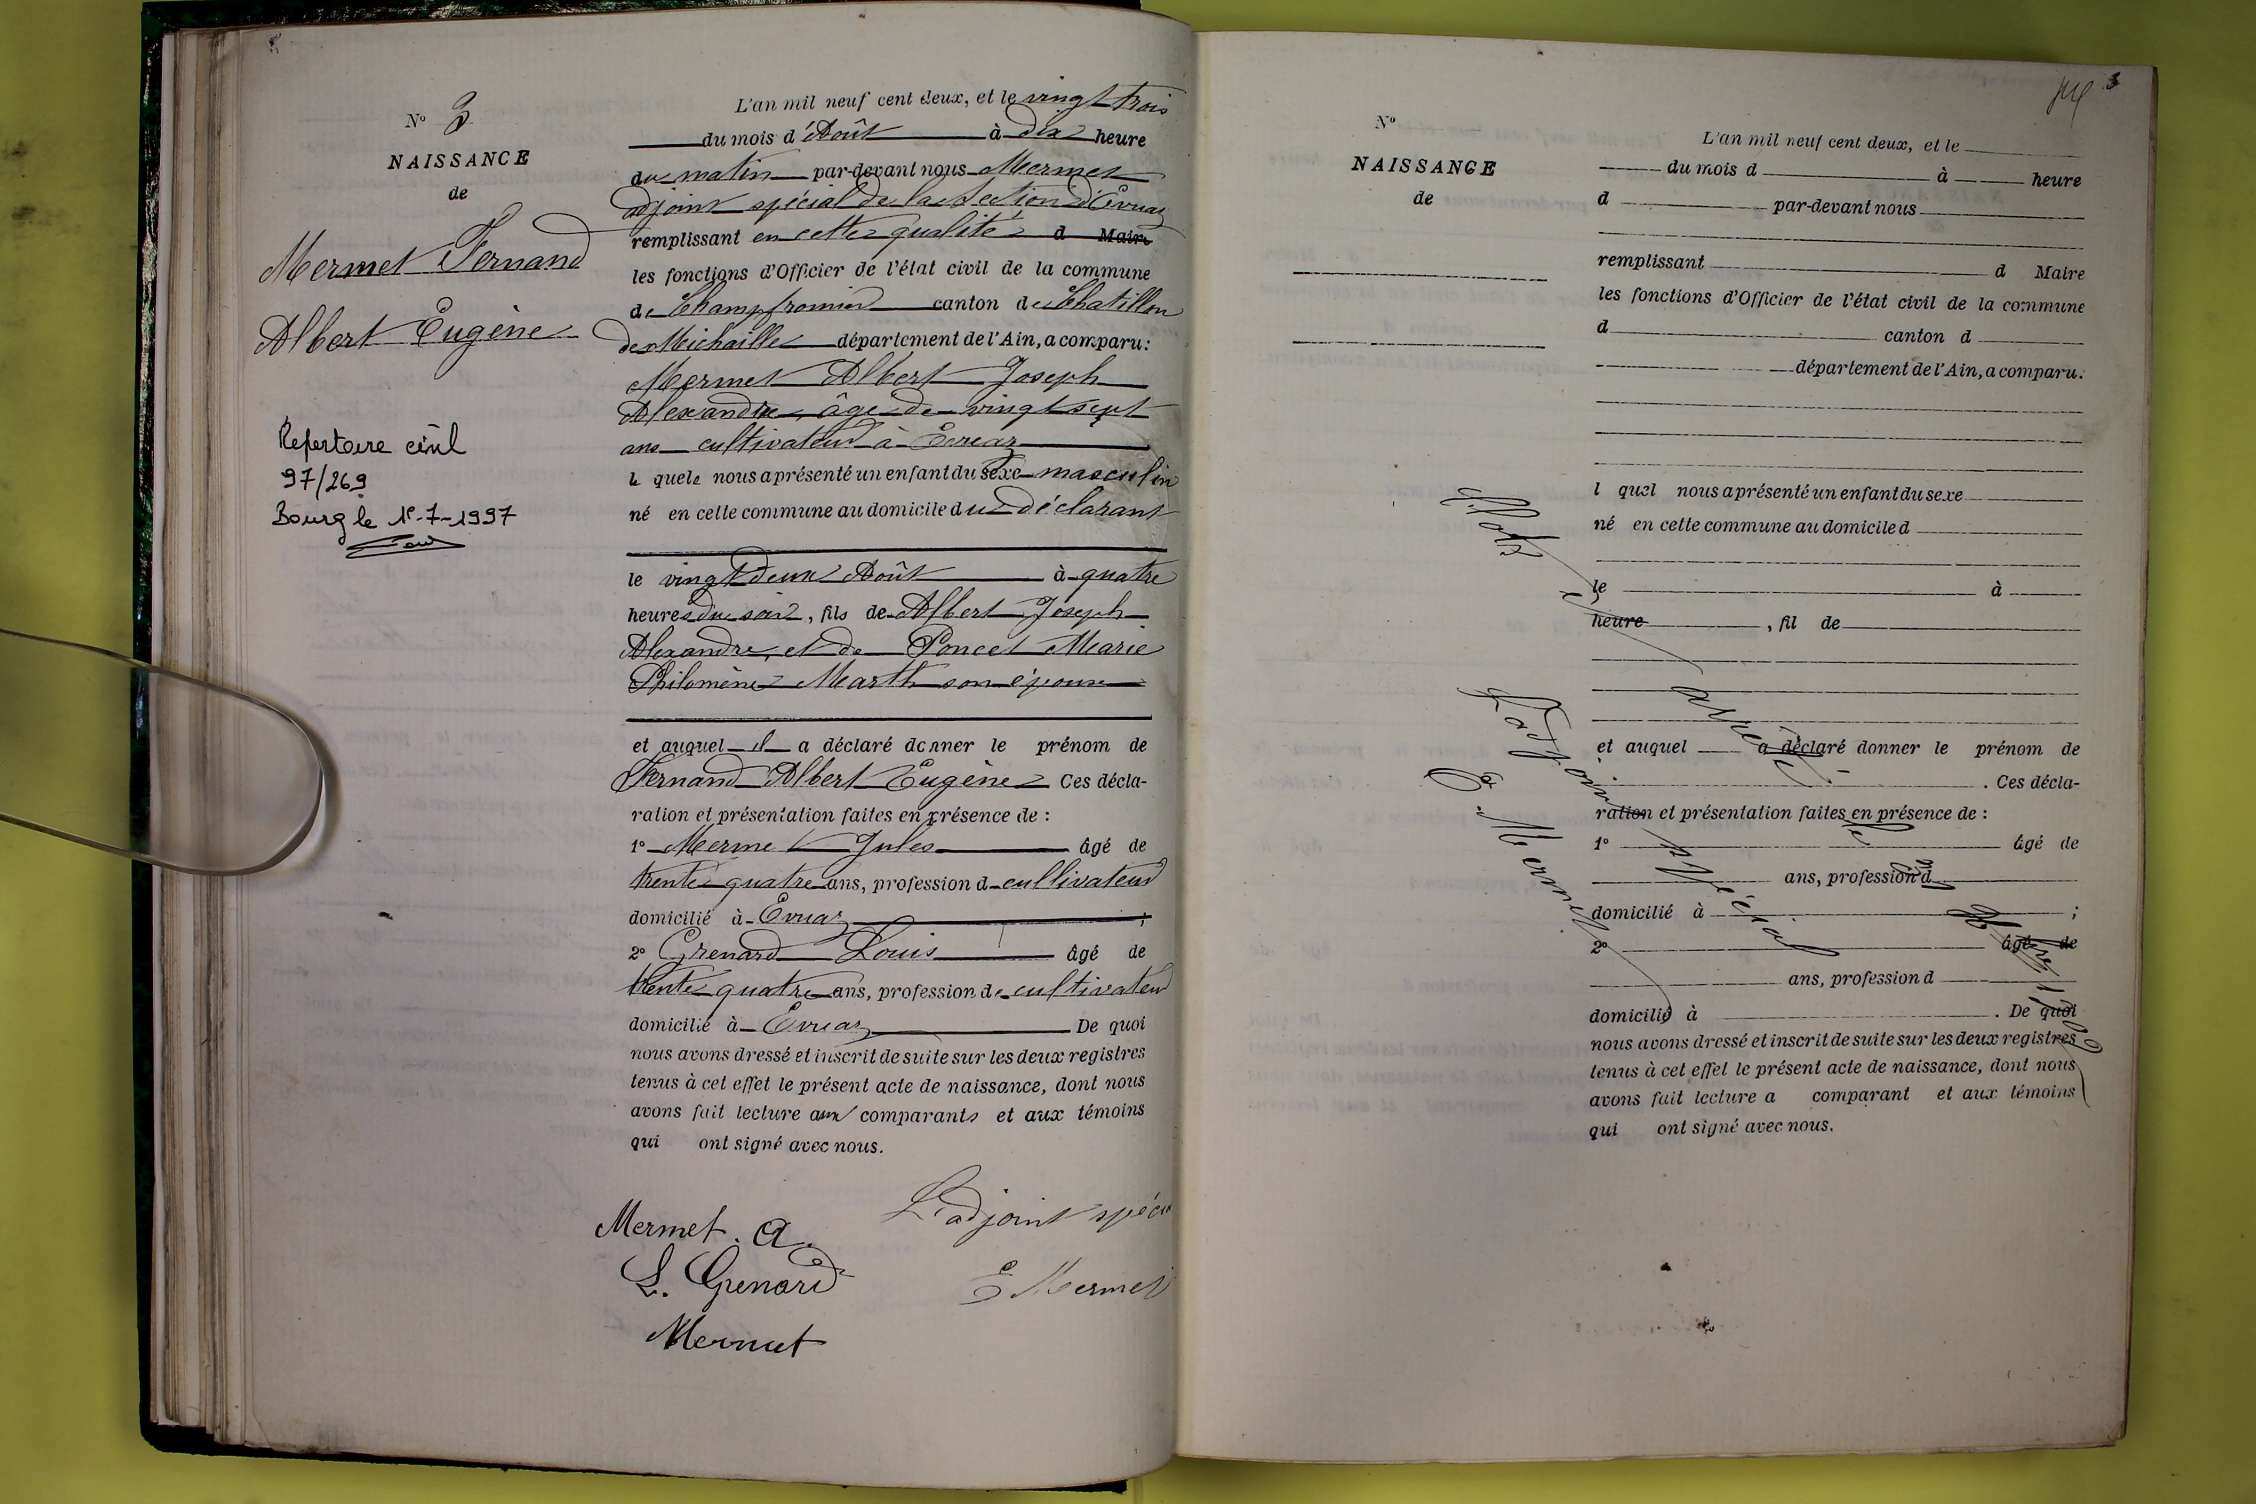 N° 3
NAISSANCE
de
Mermet Fernand
Albert Eugène
Repertoire civil
97/269
Bourg le 1e-7-1997
L'an mil neuf cent deux, et le vingt trois
du mois d'Août à dix heure
du matin par-devant nous Mermet
adjoint spécial de la Section d'Evuaz
remplissant en cette qualité d Maire
les fonctions d'Officier de l'état civil de la commune
de Champfromier canton de Chatillon
de Michaille département de l'Ain, a comparu:
Mermet Albert Joseph
Alexandre, âgé de vingt sept
ans cultivateur à Evuaz
le quel nous a présenté un enfant du sexe masculin
né en cette commune au domicile du déclarant
le vingt deux Août à quatre
heures du soir, fils de Albert Joseph
Alexandre, et de Poncet Marie
Philomène Marth son épouse
et auquel il a déclaré donner le prénom de
Fernand Albert Eugène Ces décla-
ration et présentation faites en présence de :
1° Mermet Jules âgé de
trente quatre ans, profession d cultivateur
domicilié à Evuaz ;
2° Grenard Louis âgé de
trente quatre ans, profession de cultivateur
domicilié à Evuaz De quoi
nous avons dressé et inscrit de suite sur les deux registres
tenus à cet effet le présent acte de naissance, dont nous
avons fait lecture aux comparants et aux témoins
qui ont signé avec nous.
Mermet. A.
L'adjoint spécia
L. Grenard
E Mermet
Mermet
3
N°
NAISSANCE
de
L'an mil neuf cent deux, et le
du mois d à heure
d par-devant nous
remplissant d Maire
les fonctions d'Officier de l'état civil de la commune
d canton d
département de l'Ain, a comparu:
l quel nous a présenté un enfant du sexe
né en cette commune au domicile d
le à
heure , fil de
et auquel a déclaré donner le prénom de
. Ces décla-
ration et présentation faites en présence de :
1° âgé de
ans, profession d
domicilié à ;
2° âgé de
ans, profession d
domicilié à . De quoi
nous avons dressé et inscrit de suite sur les deux registres
tenus à cet effet le présent acte de naissance, dont nous
avons fait lecture a comparant et aux témoins
qui ont signé avec nous.
Clos et arrêté le
L'adjoint spécial
E. Mermet